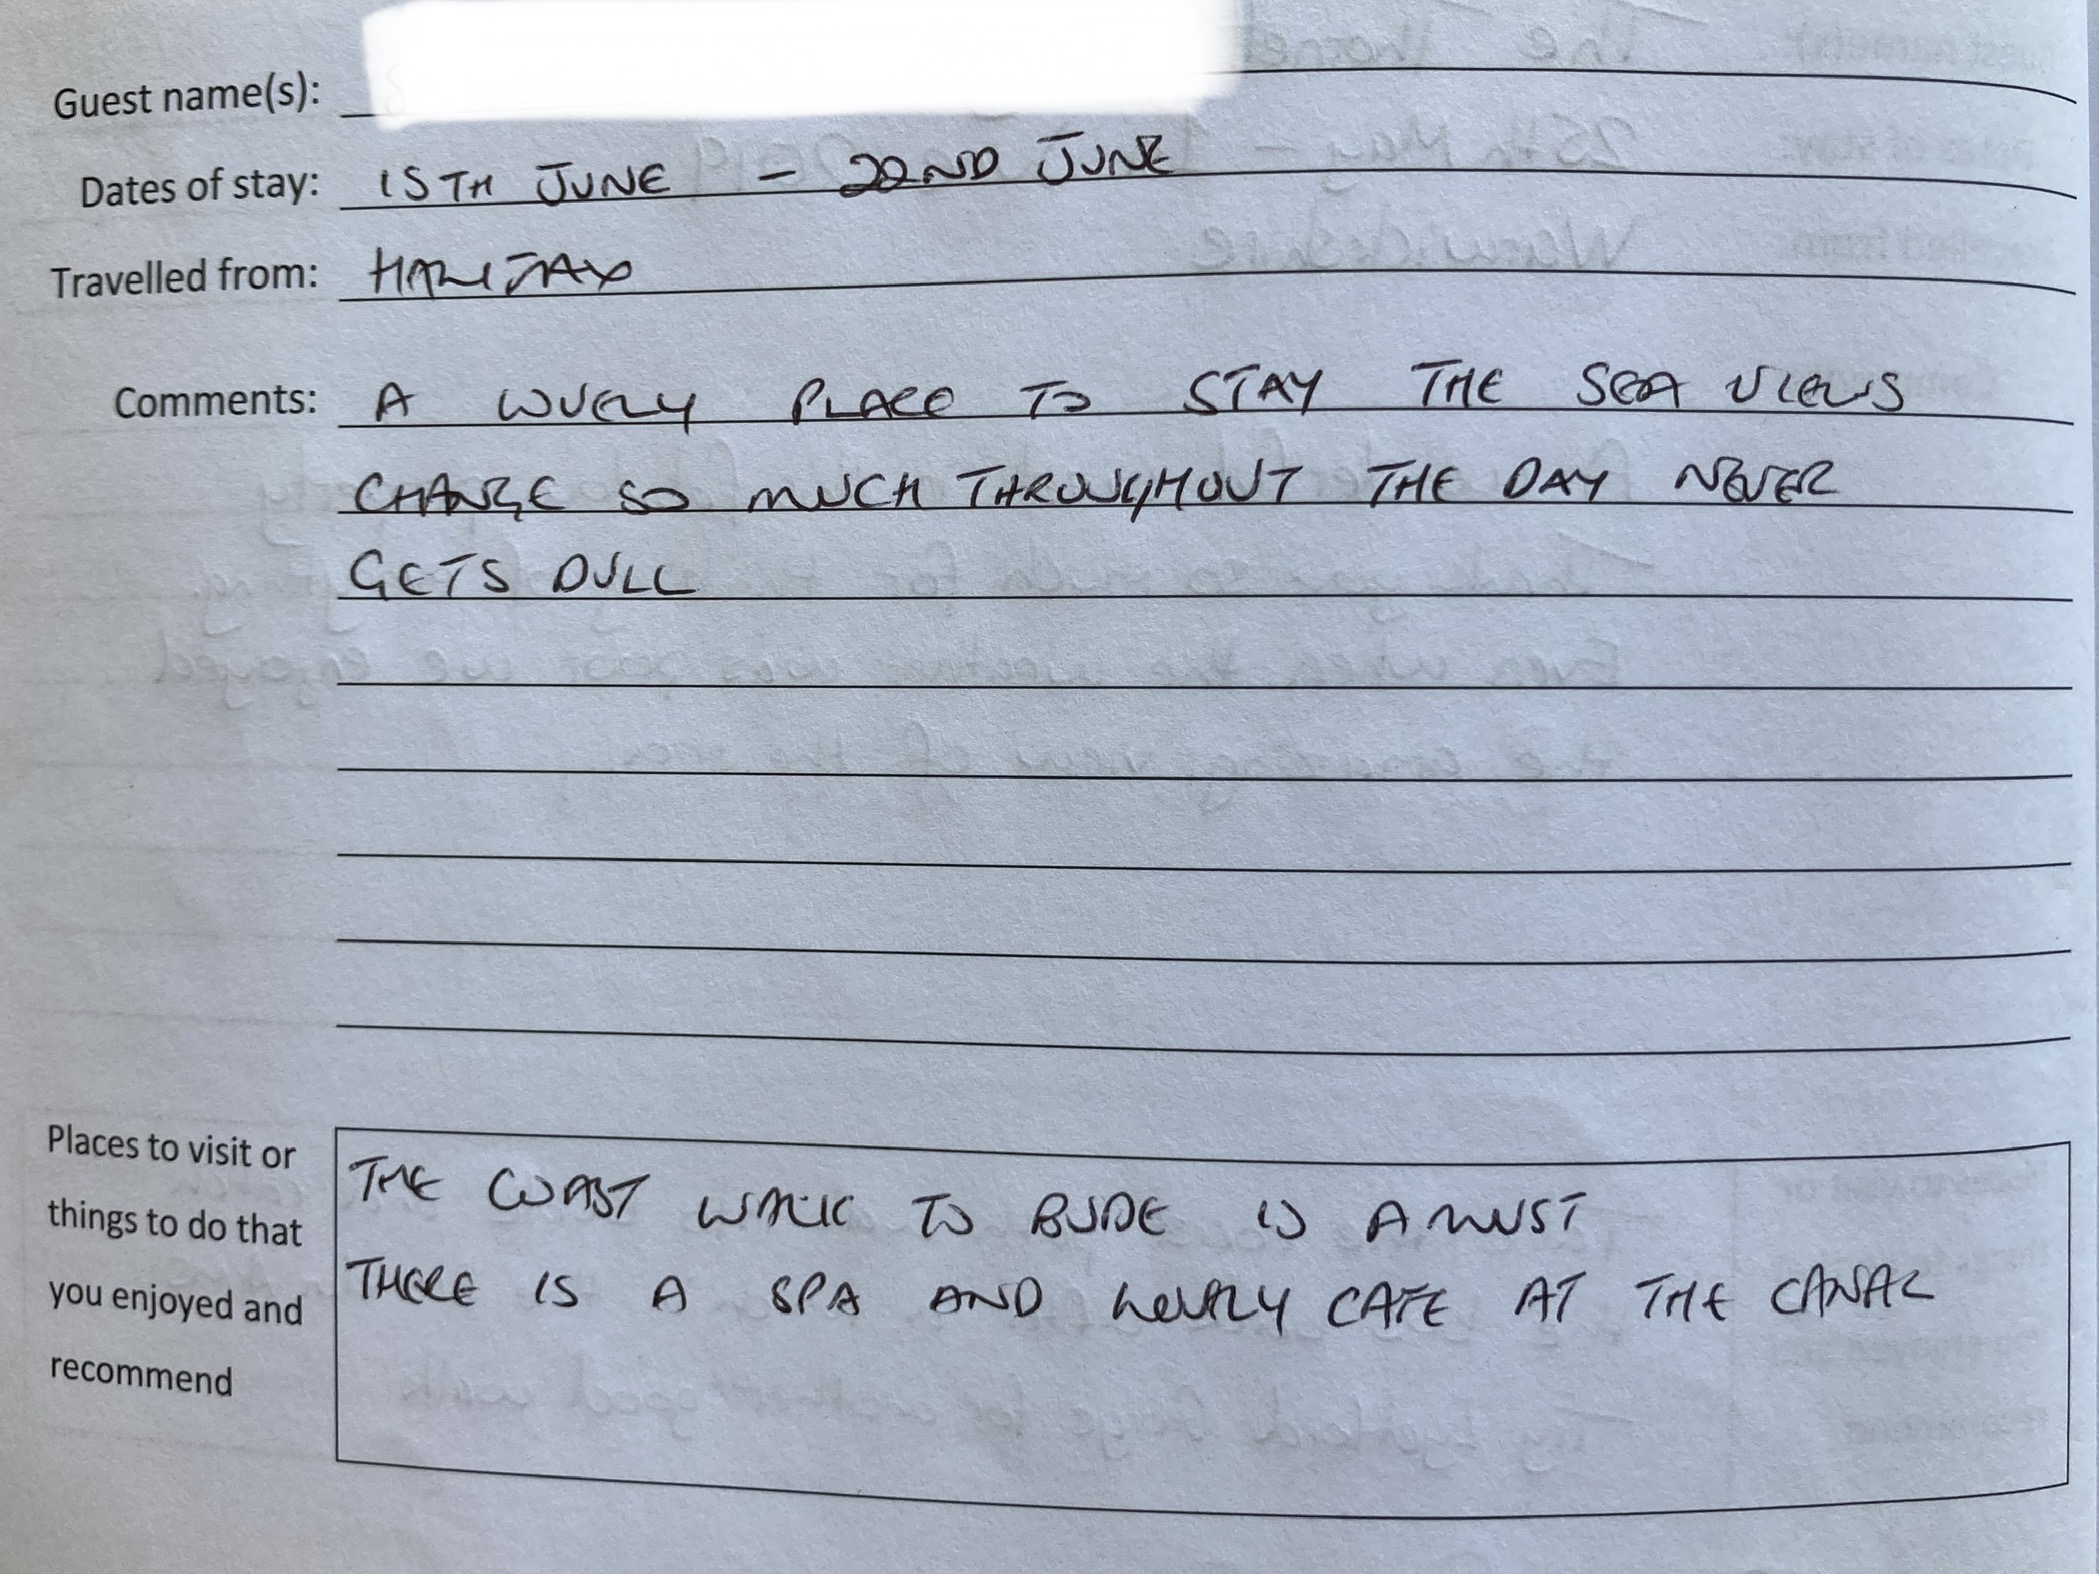 Guest name(s):
Dates of stay: 15TH JUNE - 22ND JUNE
Travelled from: HALIFAX
Comments: A LOVELY PLACE TO STAY THE SEA VIEWS
CHANGE SO MUCH THROUGHOUT THE DAY NEVER
GETS DULL
Places to visit or
things to do that
you enjoyed and
recommend
THE COAST WALK TO BUDE IS A MUST
THERE IS A SPA AND LOVELY CAFE AT THE CANAL